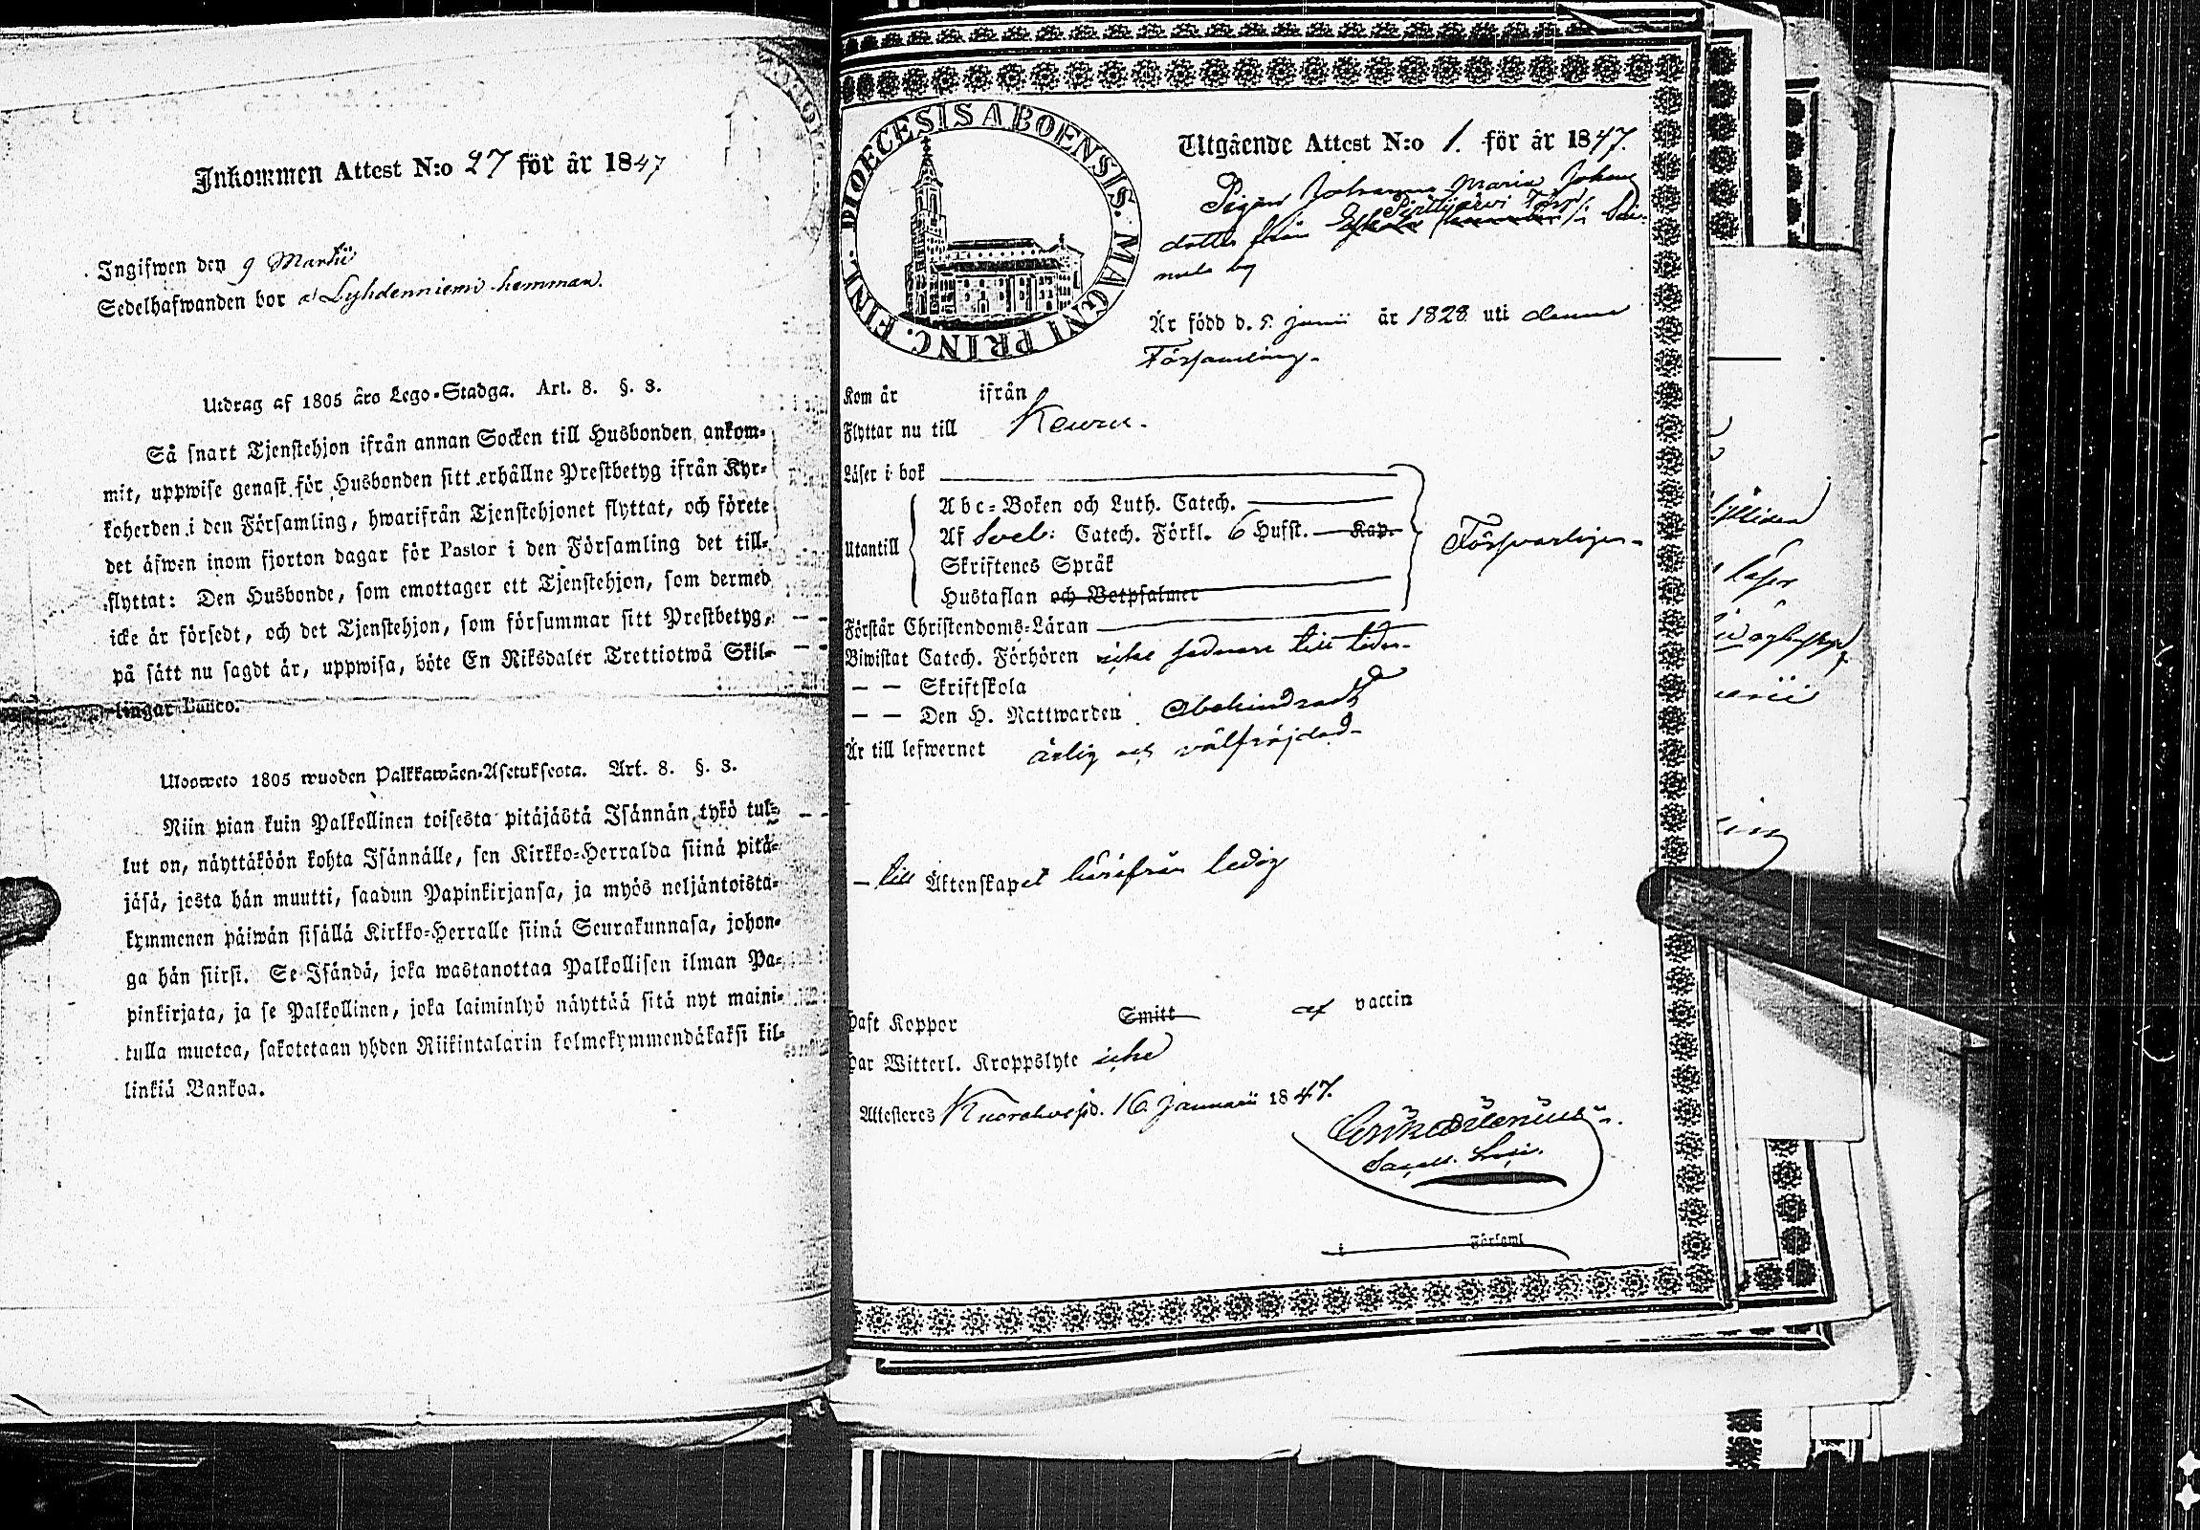 Inkommen Attest N:o 27 för år 1847
Ingifwen den 9 Martii
Sedelhafwanden bor å Lyhdenniemi hemman.
Utdrag af 1805 års Lego-Stadga. Art. 8. §. 3.
Så snart Tjenstehjon ifrån annan Socken till Husbonden ankom-
mit, uppwise genast för Husbonden sitt erhållne Prestbetyg ifrån Kyr-
koherden i den Församling, hwarifrån Tjenstehjonet flyttat, och förete
det äfwen inom fjorton dagar för Pastor i den Församling det till-
flyttat: Den Husbonde, som emottager ett Tjenstehjon, som dermed
icke är försedt, och det Tjenstehjon, som försummar sitt Prestbetyg,
på sätt nu sagdt är, uppwisa, böte En Riksdaler Trettiotwå Skil-
lingar Banco.
Ulosweto 1805 wuoden Palkkawäen-Asetuksesta. Art. 8. §. 3.
Niin pian kuin Palkollinen toisesta pitäjästä Isännän tykö tul-
lut on, näyttäköön kohta Isännälle, sen Kirkko-Herralda siinä pitä-
jäsä, josta hän muutti, saadun Papinkirjansa, ja myös neljäntoista-
kymmenen päiwän sisällä Kirkko-Herralle siinä Seurakunnasa, johon-
ga hän siirsi. Se Isändä, joka wastanottaa Palkollisen ilman Pa-
pinkirjata, ja se Palkollinen, joka laiminlyö näyttää sitä nyt maini-
tulla muotoa, sakotetaan yhden Riikintalarin kolmekymmendäkaksi kil-
linkiä Bankoa.
DIOECESIS ABOENSIS. MAGNI PRINC. FINL.
Utgående Attest N:o 1. för år 1847.
Pigan Johanna Maria Johans
Pirttijärvi Torp
dotter från i
by
Är född d. 5 Junii år 1828 uti denna
Församling.
Kom år ifrån
Flyttar nu till Keuru.
Läser i bok
Abc-Boken och Luth. Catech.
Utantill Af Sveb: Catech. Förkl. 6 Hufst. Kap. Försvarligen
Skriftenes Språk
Hustaflan och Botpsalmer
Förstår Christendoms-Läran
Biwistat Catech. Förhören icke sednare tider
— — Skriftskola
— — Den H. Nattwarden Obehindradt
Är till lefwernet ärlig och välfräjdad
— till Äktenskapet härifrån ledig
Haft Koppor Smitt af vaccin
Har Witterl. Kroppslyte icke
Attesteres Kuorehvesi d. 16 Januarii 1847.
i Församl